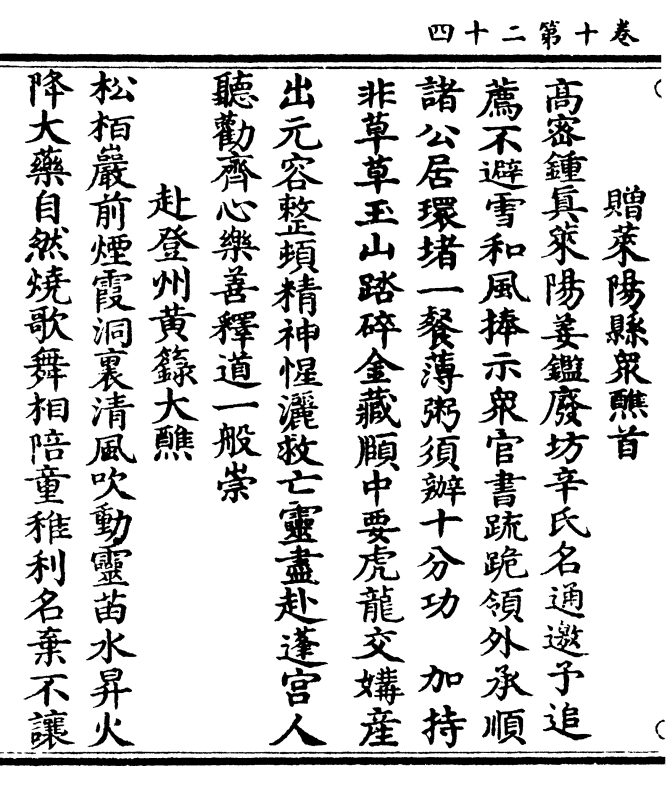 卷十第二十四
贈萊陽縣眾醮首
高密鍾眞萊陽姜鑑廢坊辛氏名通邀予追
薦不避雪和風捧示眾官書䟽跪領外承順
諸公居環堵一餐薄粥須辦十分功　加持
非草草玉山踏碎金藏願中要虎龍交媾産
出元容整頓精神惺灑救亡靈盡赴蓬宮人
聽勸齊心樂善釋道一般崇
赴登州黄籙大醮
松栢巖前煙霞洞裏清風吹動靈苗水昇火
降大藥自然燒歌舞相陪童稚利名棄不讓